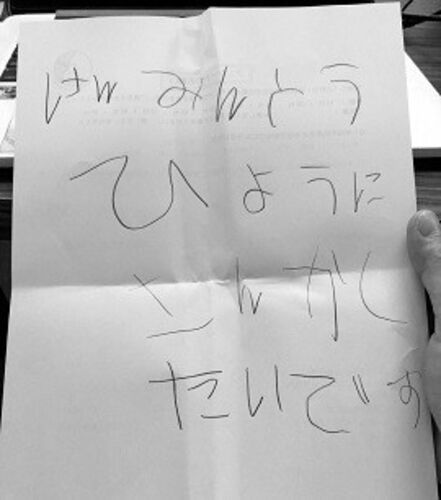 けんみんとう
ひょうに
さんかし
たいです